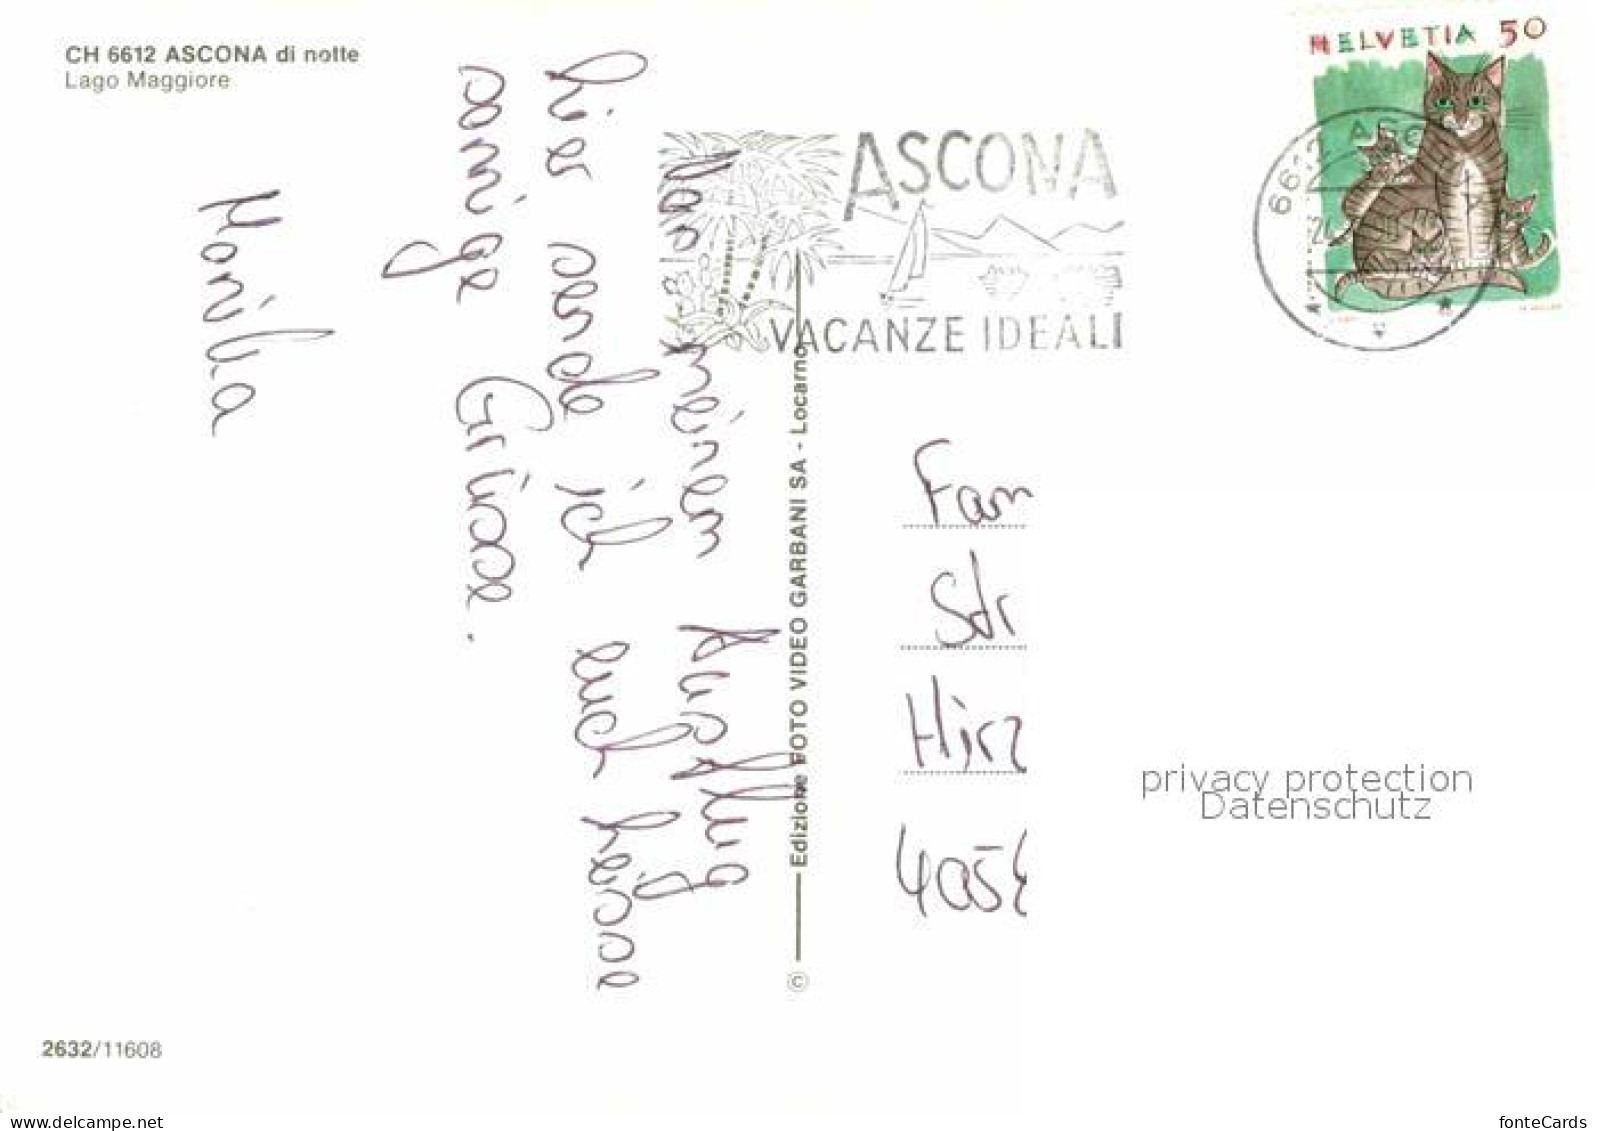 CH 6612 ASCONA di notte
Lago Maggiore
HELVETIA 50
6612 ASC
ASCONA
VACANZE IDEALI
Von meinem Ausflug
hier sende ich euch heisse
sonnige Grüsse.
Monika
© Edizione FOTO VIDEO GARBANI SA - Locarno
Fam
Str
Hirz
405
privacy protection
Datenschutz
2632/11608
www.delcampe.net
fonteCards